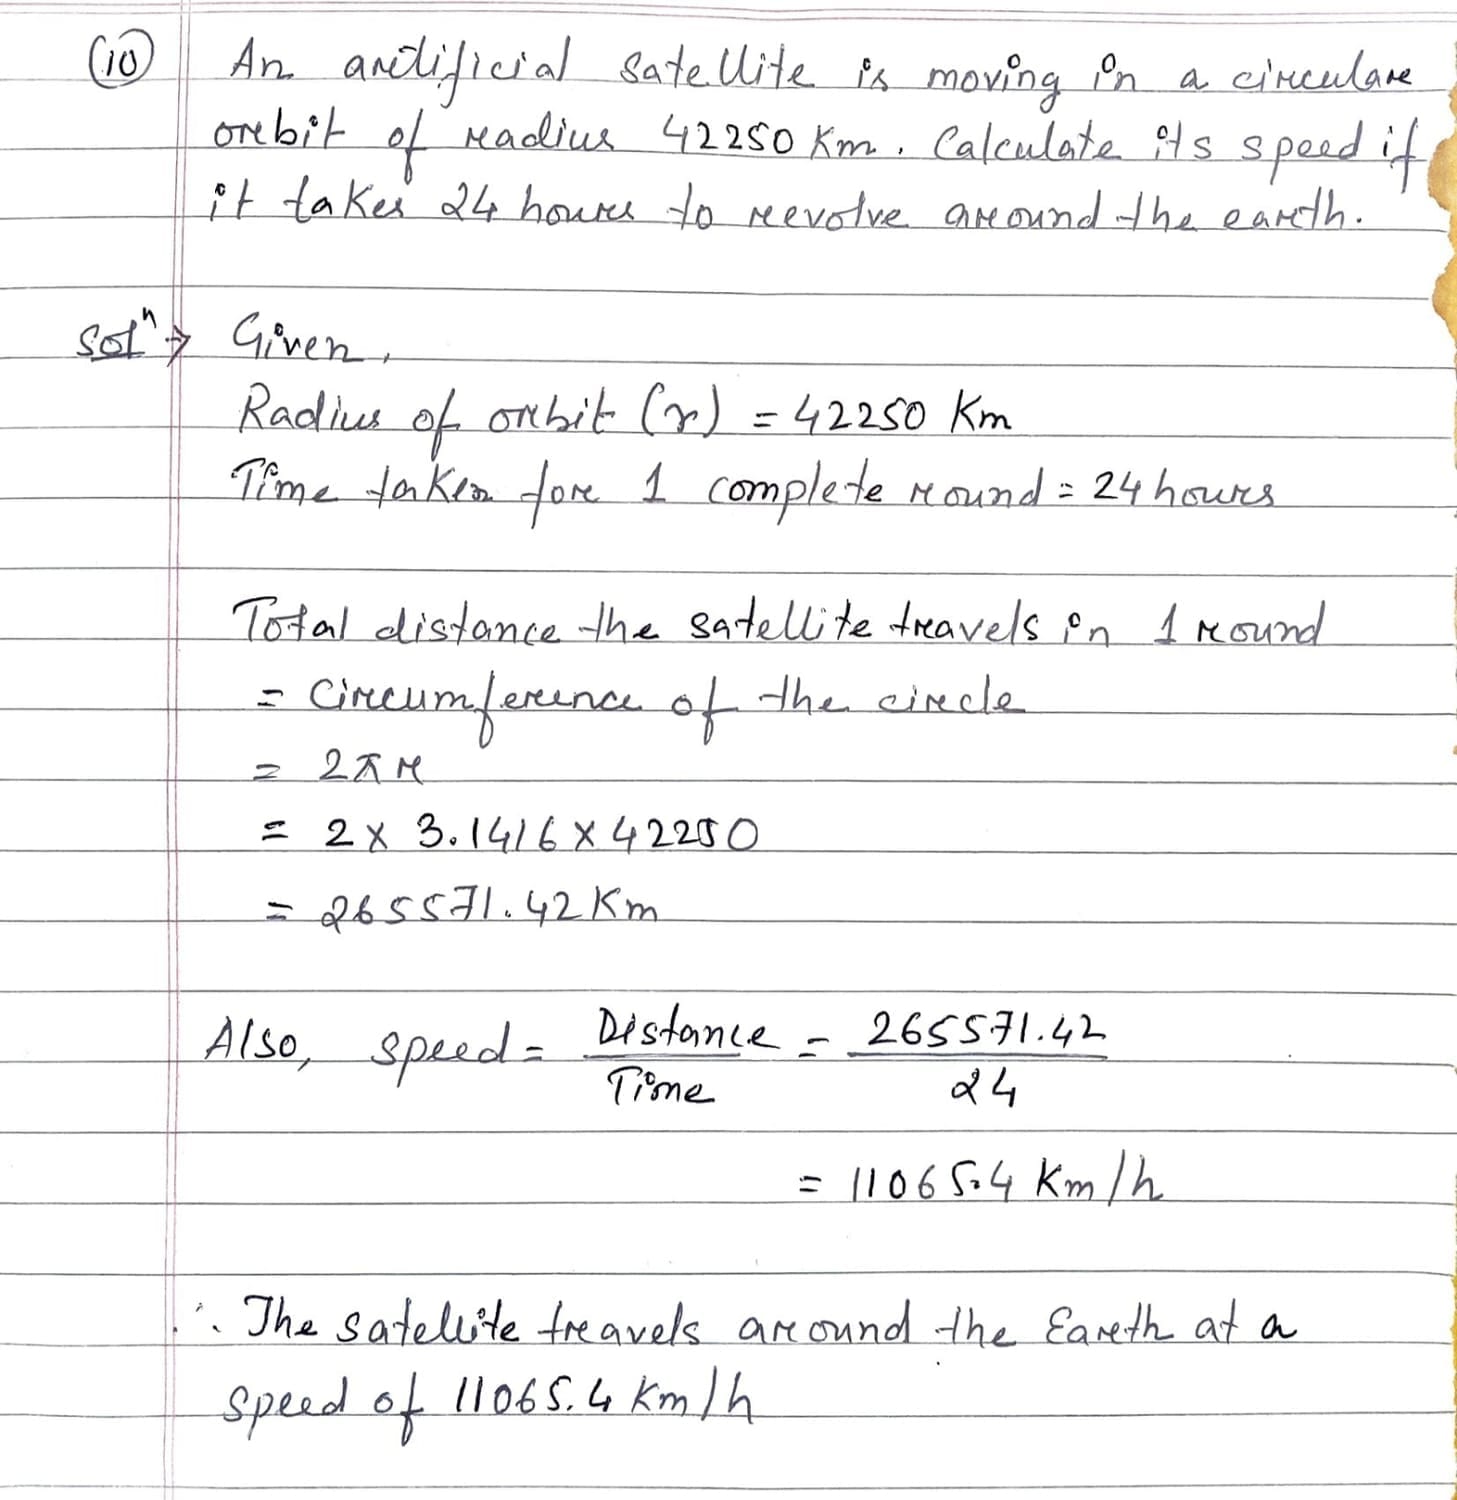 (10) An artificial satellite is moving in a circular
orbit of radius 42250 Km. Calculate its speed if
it takes 24 hours to revolve around the earth.
Solⁿ → Given,
Radius of orbit (r) = 42250 Km
Time taken for 1 complete round = 24 hours
Total distance the satellite travels in 1 round
= Circumference of the circle
= 2πr
= 2 x 3.1416 x 42250
= 265571.42 Km
Also, speed = Distance/Time = 265571.42/24
= 11065.4 Km/h
∴ The satellite travels around the Earth at a
speed of 11065.4 Km/h